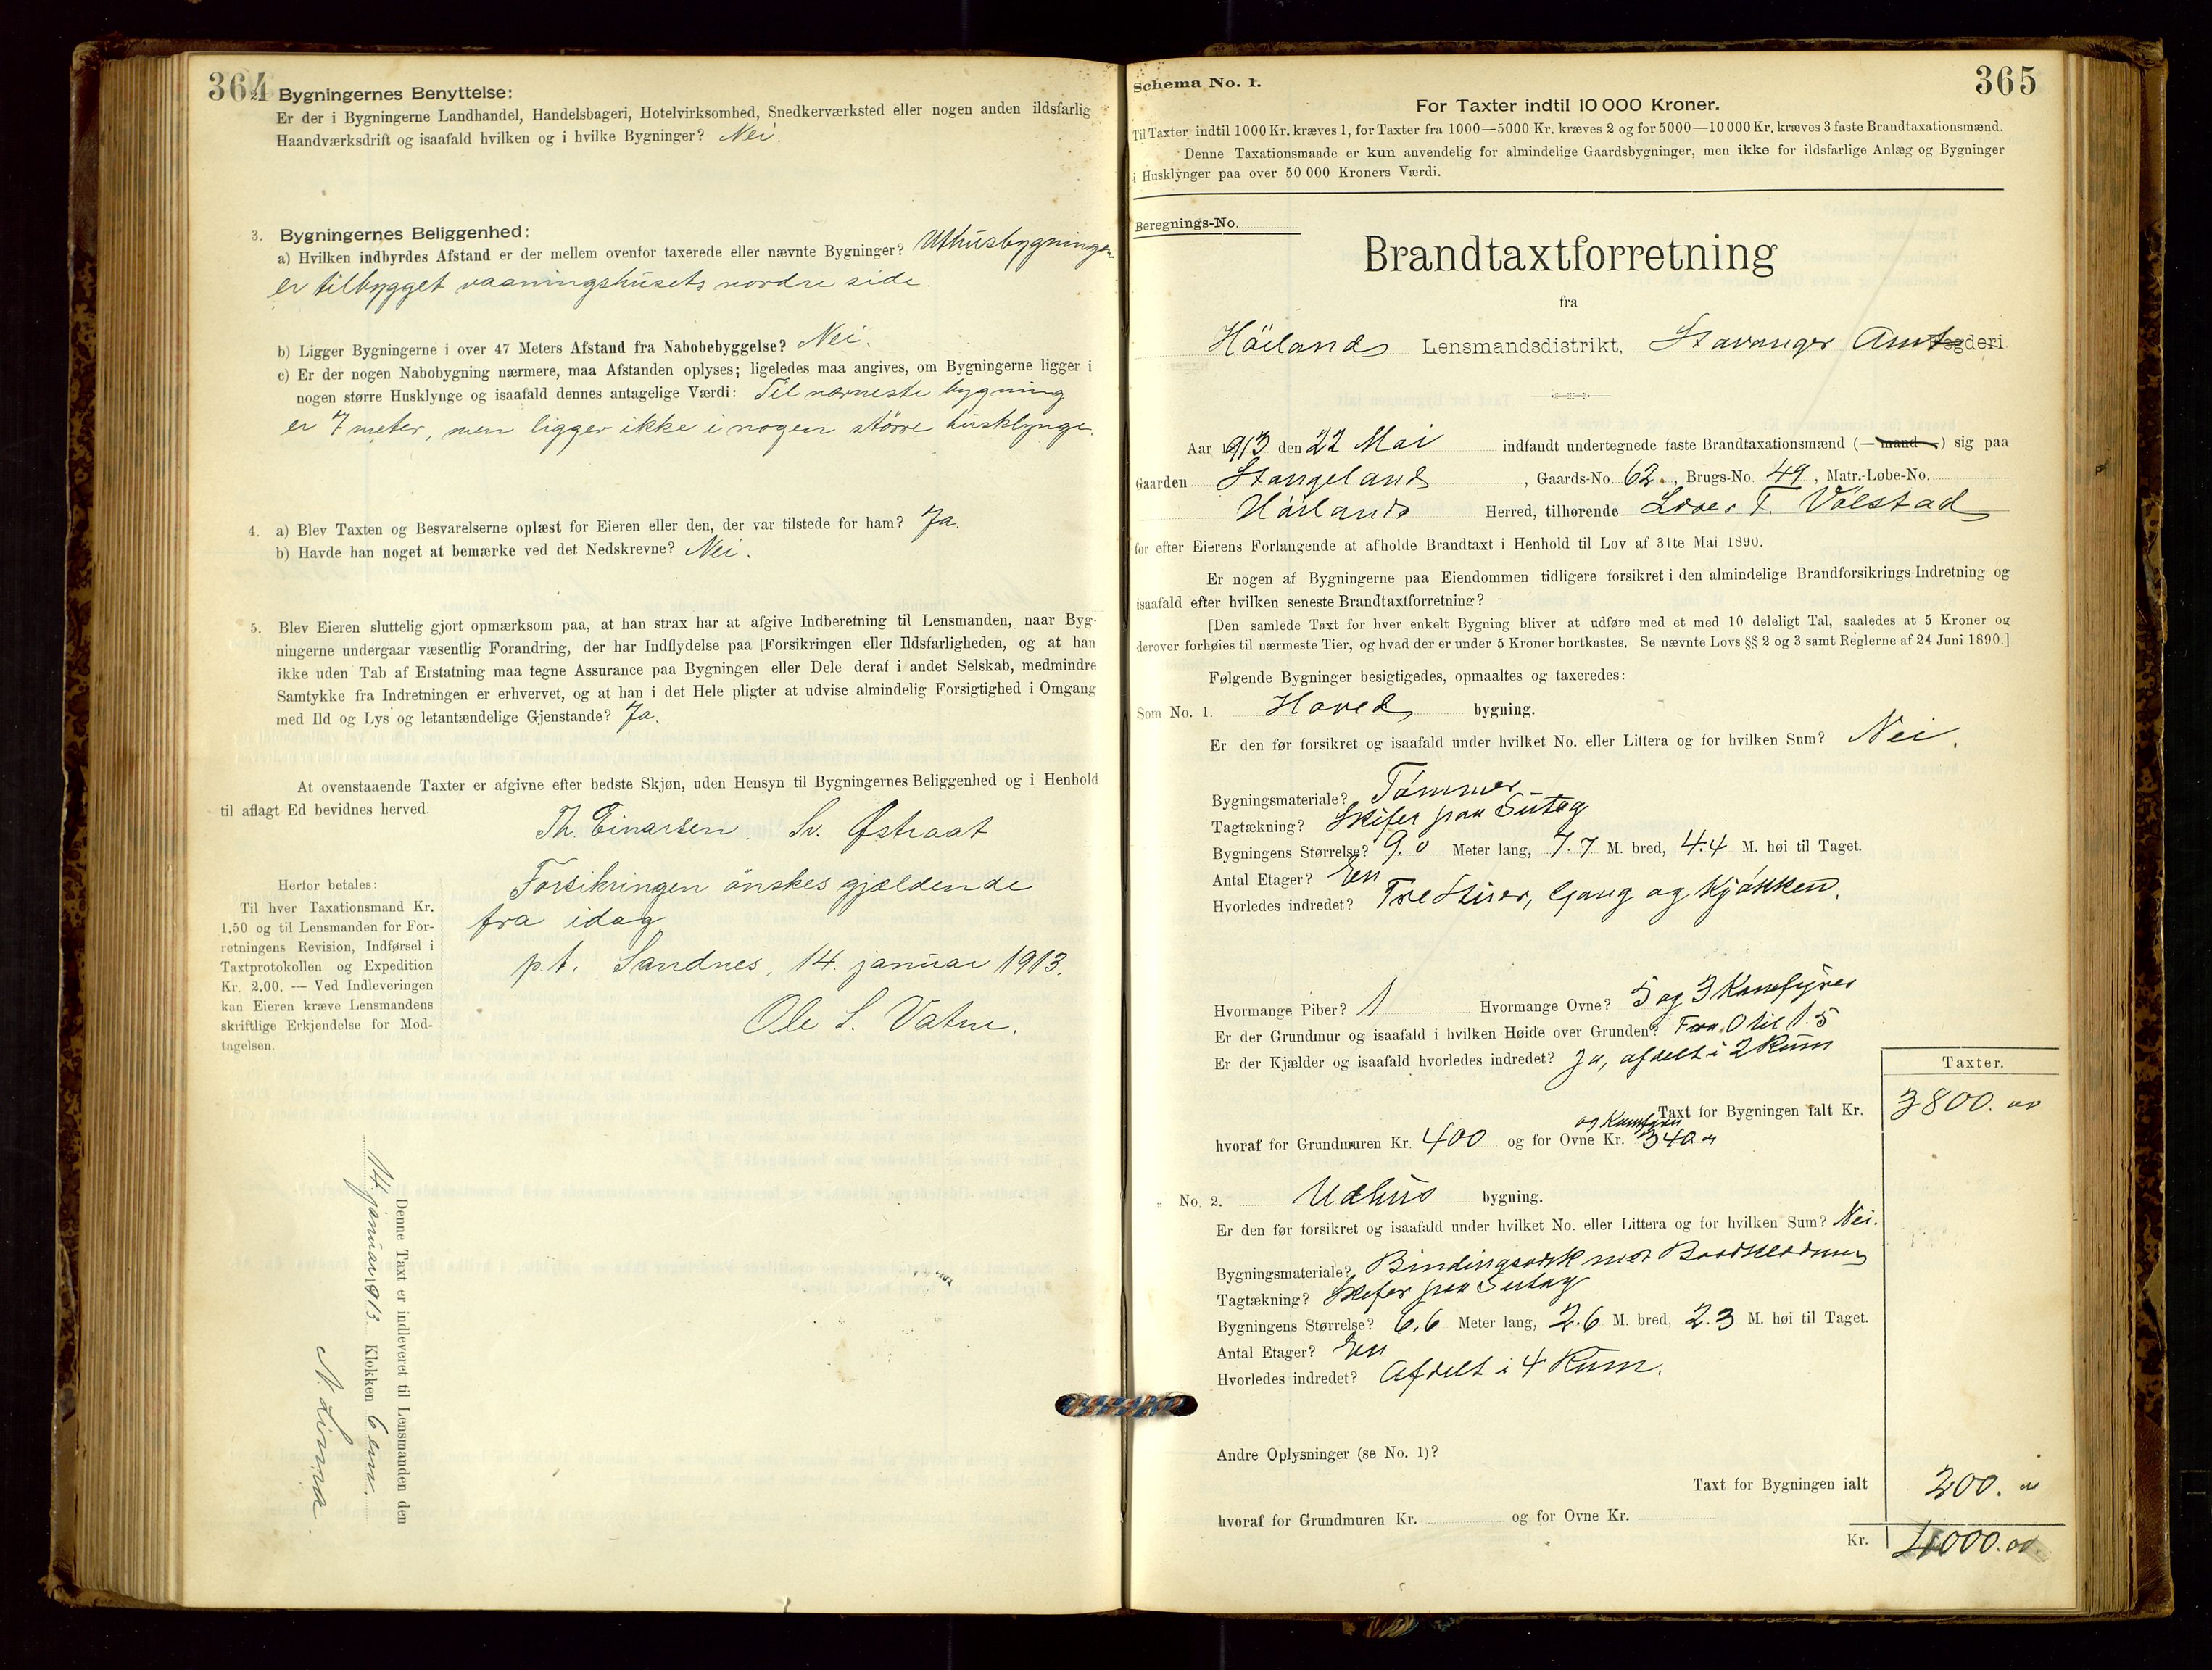 364
2. Bygningernes Benyttelse:
Er der i Bygningerne Landhandel, Handelsbageri, Hotelvirksomhed, Snedkerværksted eller nogen anden ildsfarlig
Haandværksdrift og isaafald hvilken og i hvilke Bygninger? Nei.
3. Bygningernes Beliggenhed:
a) Hvilken indbyrdes Afstand er der mellem ovenfor taxerede eller nævnte Bygninger? Uthusbygningen
er tilbygget vaaningshusets nordre side.
b) Ligger Bygningerne i over 47 Meters Afstand fra Nabobebyggelse? Nei.
c) Er der nogen Nabobygning nærmere, maa Afstanden oplyses; ligeledes maa angives, om Bygningerne ligger i
nogen større Husklynge og isaafald dennes antagelige Værdi: Til nærneste bygning
er 7 meter, men ligger ikke i nogen større husklynge.
4. a) Blev Taxten og Besvarelserne oplæst for Eieren eller den, der var tilstede for ham? Ja.
b) Havde han noget at bemærke ved det Nedskrevne? Nei.
5. Blev Eieren sluttelig gjort opmærksom paa, at han strax har at afgive Indberetning til Lensmanden, naar Byg-
ningerne undergaar væsentlig Forandring, der har Indflydelse paa Forsikringen eller Ildsfarligheden, og at han
ikke uden Tab af Erstatning maa tegne Assurance paa Bygningen eller Dele deraf i andet Selskab, medmindre
Samtykke fra Indretningen er erhvervet, og at han i det Hele pligter at udvise almindelig Forsigtighed i Omgang
med Ild og Lys og letantændelige Gjenstande? Ja.
At ovenstaaende Taxter er afgivne efter bedste Skjøn, uden Hensyn til Bygningernes Beliggenhed og i Henhold
til aflagt Ed bevidnes herved.
Th. Einarsen. Sv. Østraat
Forsikringen ønskes gjældende
fra idag
p.t. Sandnes, 14. januar 1913.
Ole S. Vatne.
Herfor betales:
Til hver Taxationsmand Kr.
1.50 og til Lensmanden for For-
retningens Revision, Indførsel i
Taxtprotokollen og Expedition
Kr. 2.00. — Ved Indleveringen
kan Eieren kræve Lensmandens
skriftlige Erkjendelse for Mod-
tagelsen.
Denne Taxt er indleveret til Lensmanden den
14. januar 1913. Klokken 6 em.
N. Lima.
365
Schema No. 1.
For Taxter indtil 10 000 Kroner.
Til Taxter indtil 1000 Kr. kræves 1, for Taxter fra 1000—5000 Kr. kræves 2 og for 5000—10 000 Kr. kræves 3 faste Brandtaxationsmænd.
Denne Taxationsmaade er kun anvendelig for almindelige Gaardsbygninger, men ikke for ildsfarlige Anlæg og Bygninger
i Husklynger paa over 50 000 Kroners Værdi.
Beregnings-No.
Brandtaxtforretning
fra
Höilands Lensmandsdistrikt, Stavanger Amt Fogderi
Aar 1913 den 22 Mai indfandt undertegnede faste Brandtaxationsmænd (— mand —) sig paa
Gaarden Stangeland, Gaards-No. 62., Brugs-No. 49, Matr.-Løbe-No.
Höilands Herred, tilhørende T. Volstad
for efter Eierens Forlangende at afholde Brandtaxt i Henhold til Lov af 31te Mai 1890.
Er nogen af Bygningerne paa Eiendommen tidligere forsikret i den almindelige Brandforsikrings-Indretning og
isaafald efter hvilken seneste Brandtaxtforretning?
[Den samlede Taxt for hver enkelt Bygning bliver at udføre med et med 10 deleligt Tal, saaledes at 5 Kroner og
derover forhøies til nærmeste Tier, og hvad der er under 5 Kroner bortkastes. Se nævnte Lovs §§ 2 og 3 samt Reglerne af 24 Juni 1890.]
Følgende Bygninger besigtigedes, opmaaltes og taxeredes:
Som No. 1. Hoved bygning.
Er den før forsikret og isaafald under hvilket No. eller Littera og for hvilken Sum? Nei.
Bygningsmateriale? Tømmer
Tagtækning? Skifer paa Sutag
Bygningens Størrelse? 9.0 Meter lang, 7.7 M. bred, 4.4 M. høi til Taget.
Antal Etager? En
Hvorledes indredet? Tre Stuer, Gang og Kjøkken.
Hvormange Piber? 1 Hvormange Ovne? 5 og 3 Komfyrer
Er der Grundmur og isaafald i hvilken Høide over Grunden? Fra 0 til 1.5
Er der Kjælder og isaafald hvorledes indredet? Ja, afdelt i 2 Rum
Taxter.
Taxt for Bygningen ialt Kr. 3800.00
og Komfyrer
hvoraf for Grundmuren Kr. 400 og for Ovne Kr. 340.00
" No. 2. Udhus bygning.
Er den før forsikret og isaafald under hvilket No. eller Littera og for hvilken Sum? Nei.
Bygningsmateriale? Bindingsverk med Bordklædning
Tagtækning? Skifer paa Sutag
Bygningens Størrelse? 6.6 Meter lang, 2.6 M. bred, 2.3 M. høi til Taget.
Antal Etager? En
Hvorledes indredet? Afdelt i 4 Rum.
Andre Oplysninger (se No. 1)?
Taxt for Bygningen ialt 200.00
hvoraf for Grundmuren Kr. og for Ovne Kr.
Kr. 4000.00